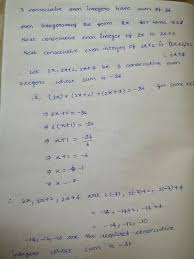 3 consecutive even integers have sum of 36
even integers are of the form 2x for some x∈Z
Next consecutive even integer of 2x is 2x+2
Next consecutive even integer of 2x+2 is (2x+2)+2
= 2x+4
∴ Let 2x, 2x+2, 2x+4 be 3 consecutive even
integers whose sum is -36
i.e. (2x) + (2x+2) + (2x+4) = -36 for some x∈Z
⇒ 6x+6 = -36
⇒ 6(x+1) = -36
⇒ x+1 = -36/6
⇒ x+1 = -6
⇒ x = -6-1
⇒ x = -7
∴ 2x, 2x+2, 2x+4 are 2(-7), 2(-7)+2, 2(-7)+4
= -14, -14+2, -14+4
= -14, -12, -10
∴ -14, -12, -10 are the required consecutive
integers whose sum is -36